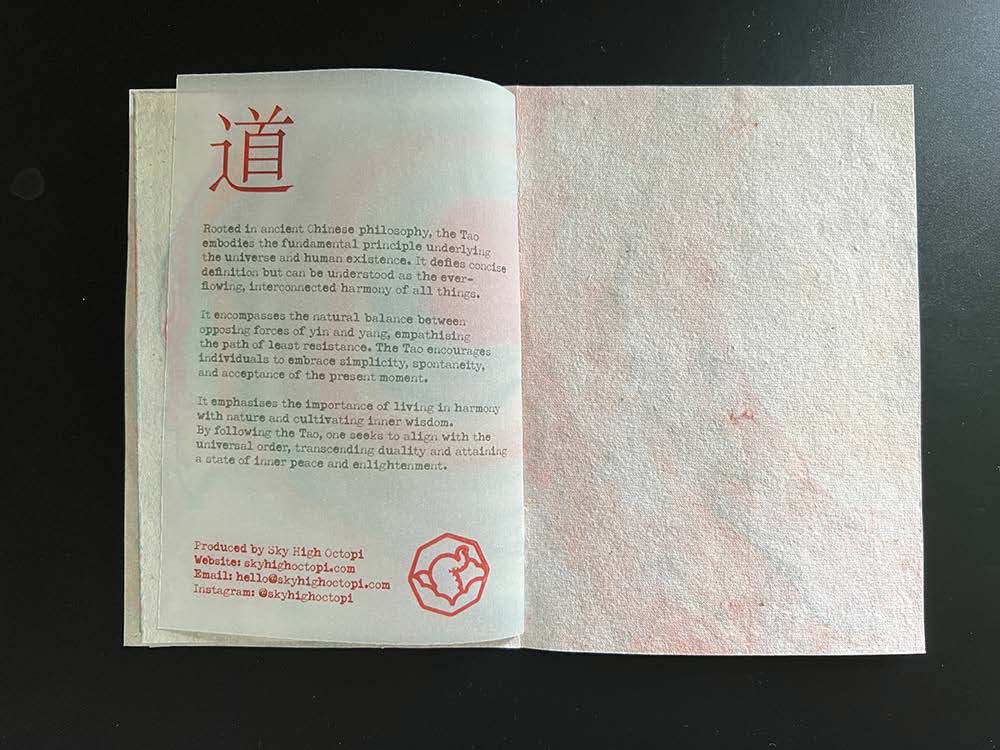 道
Rooted in ancient Chinese philosophy, the Tao
embodies the fundamental principle underlying
the universe and human existence. It defies concise
definition but can be understood as the ever-
flowing, interconnected harmony of all things.
It encompasses the natural balance between
opposing forces of yin and yang, empathising
the path of least resistance. The Tao encourages
individuals to embrace simplicity, spontaneity,
and acceptance of the present moment.
It emphasises the importance of living in harmony
with nature and cultivating inner wisdom.
By following the Tao, one seeks to align with the
universal order, transcending duality and attaining
a state of inner peace and enlightenment.
Produced by Sky High Octopi
Website: skyhighoctopi.com
Email: hello@skyhighoctopi.com
Instagram: @skyhighoctopi